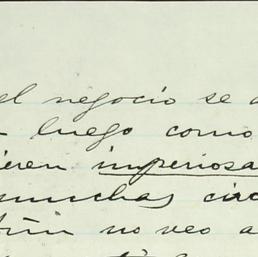 el negocio se
luego como
ieren imperiosa
muchas circ
bién no veo a